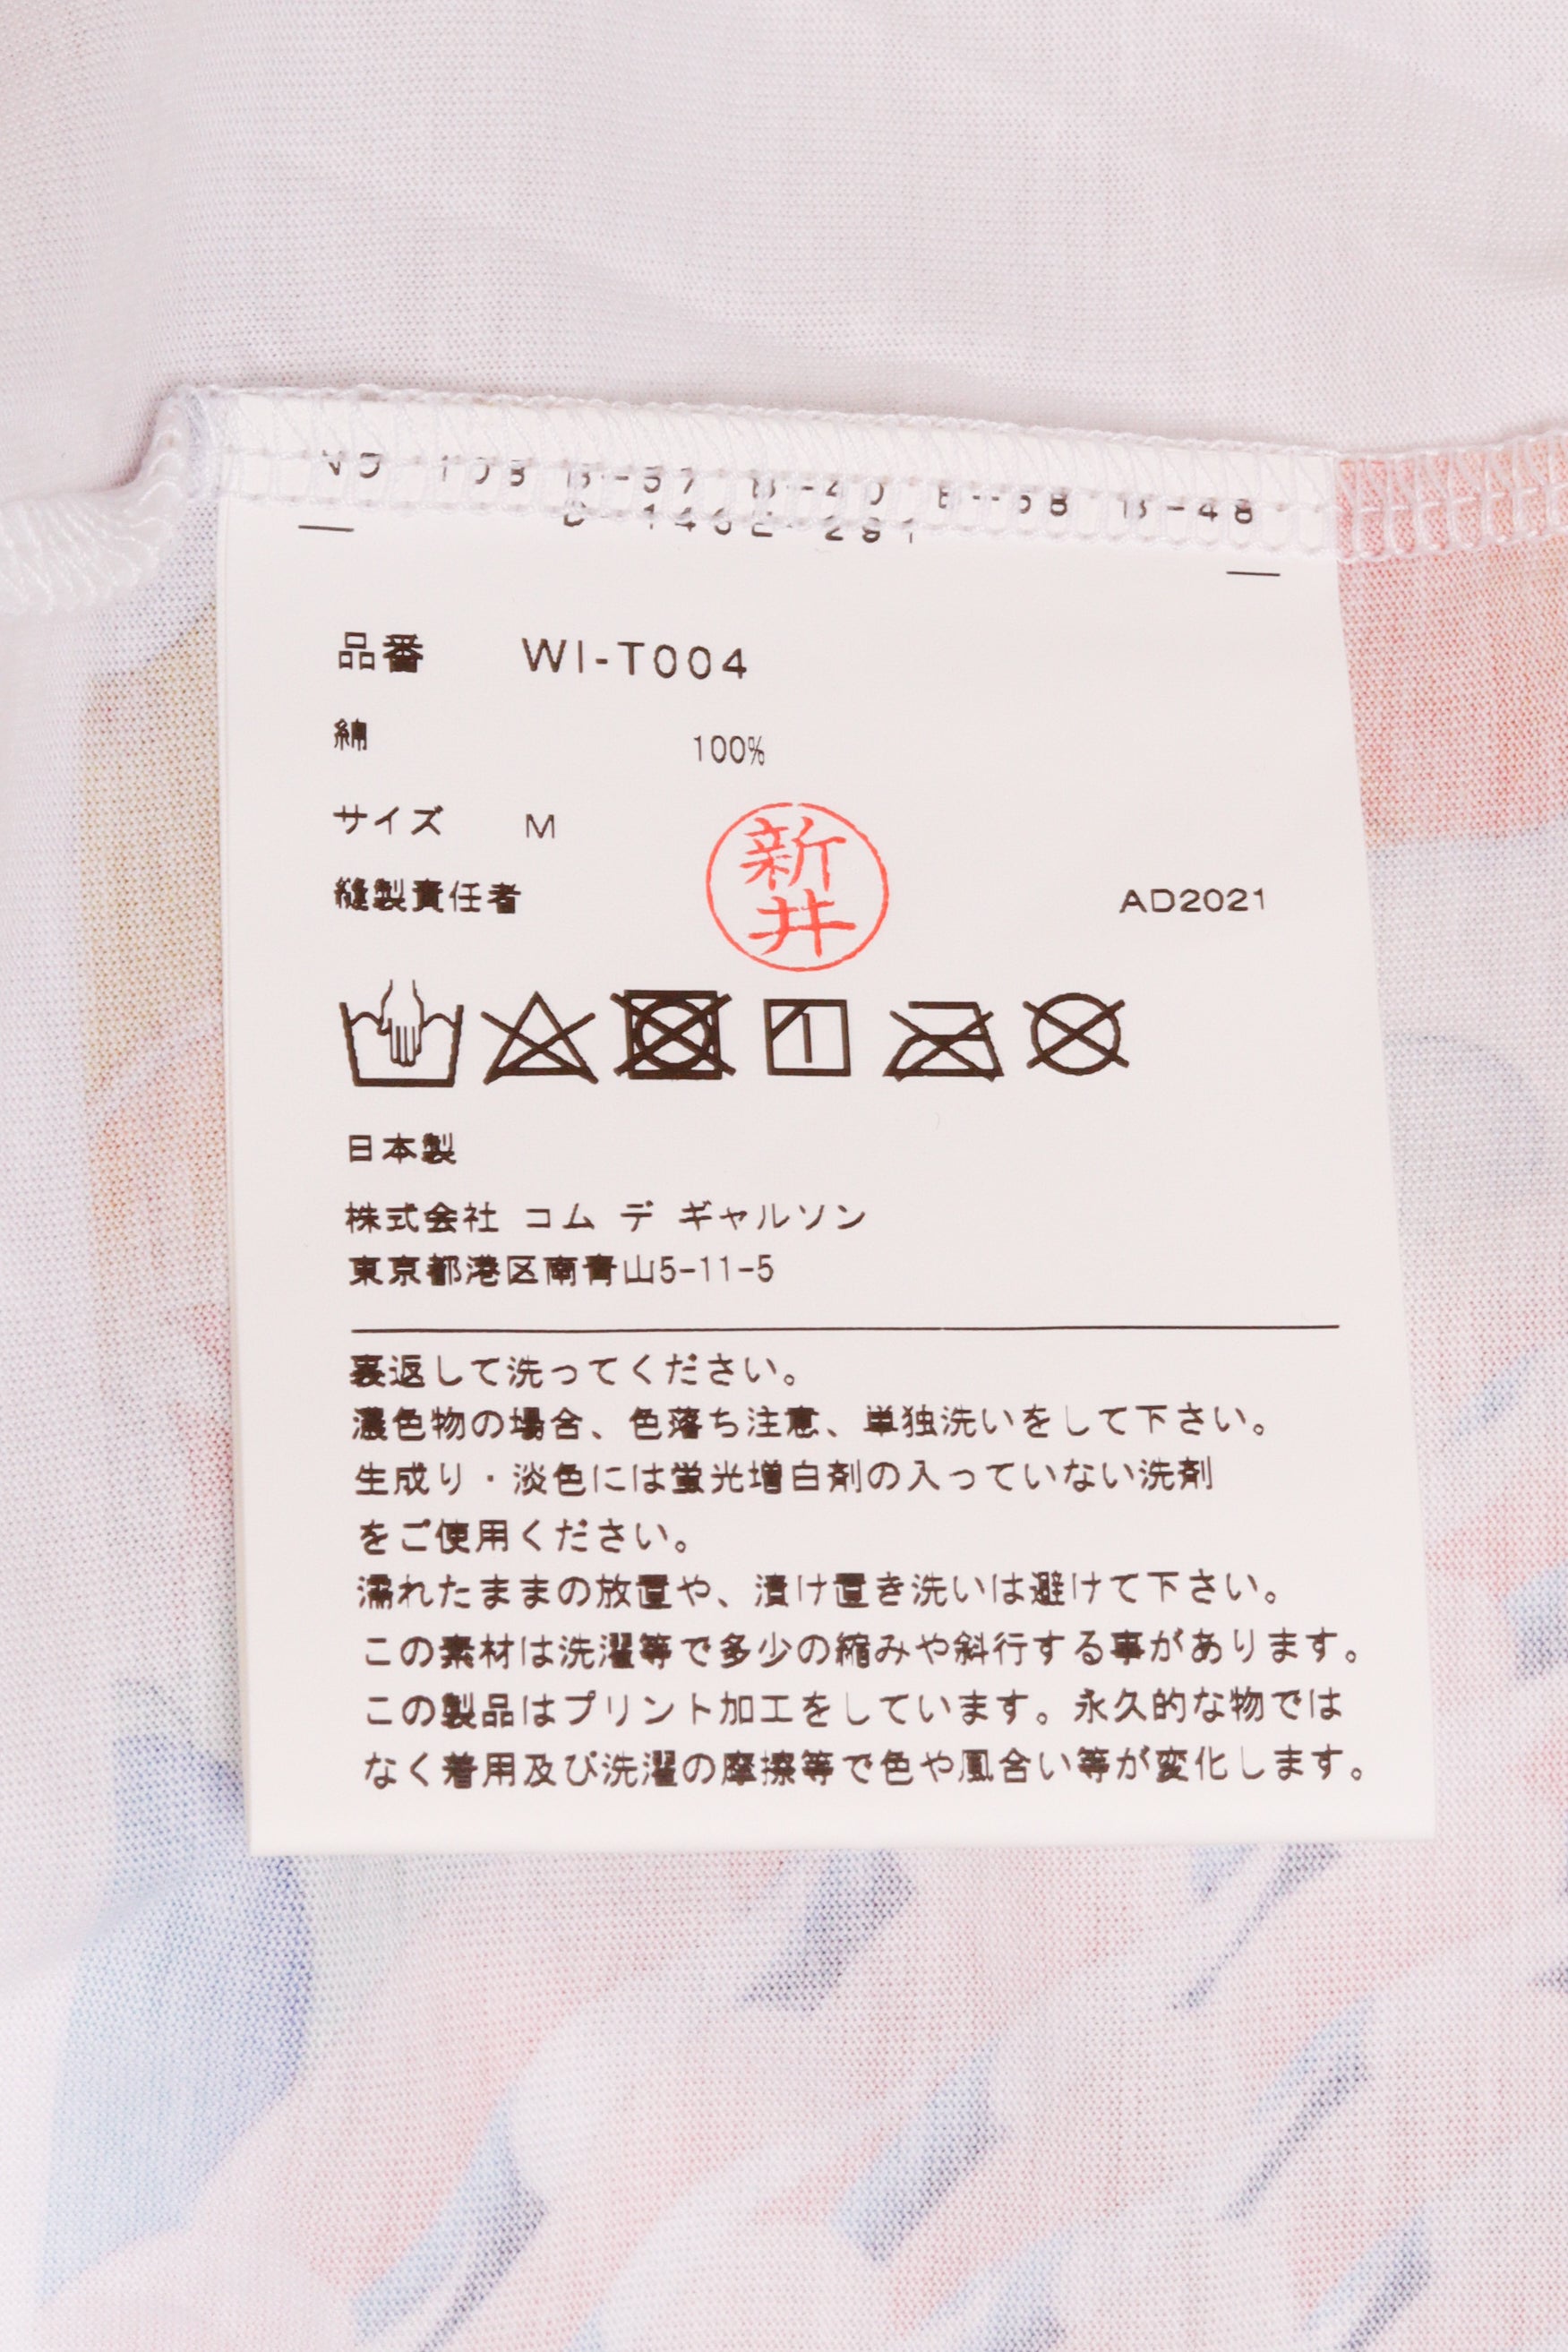 品番 WI-T004
綿 100%
サイズ M
新井
縫製責任者 AD2021
1
日本製
株式会社 コム デ ギャルソン
東京都港区南青山5-11-5
裏返して洗ってください。
濃色物の場合、色落ち注意、単独洗いをして下さい。
生成り・淡色には蛍光増白剤の入っていない洗剤
をご使用ください。
濡れたままの放置や、漬け置き洗いは避けて下さい。
この素材は洗濯等で多少の縮みや斜行する事があります。
この製品はプリント加工をしています。永久的な物では
なく着用及び洗濯の摩擦等で色や風合い等が変化します。